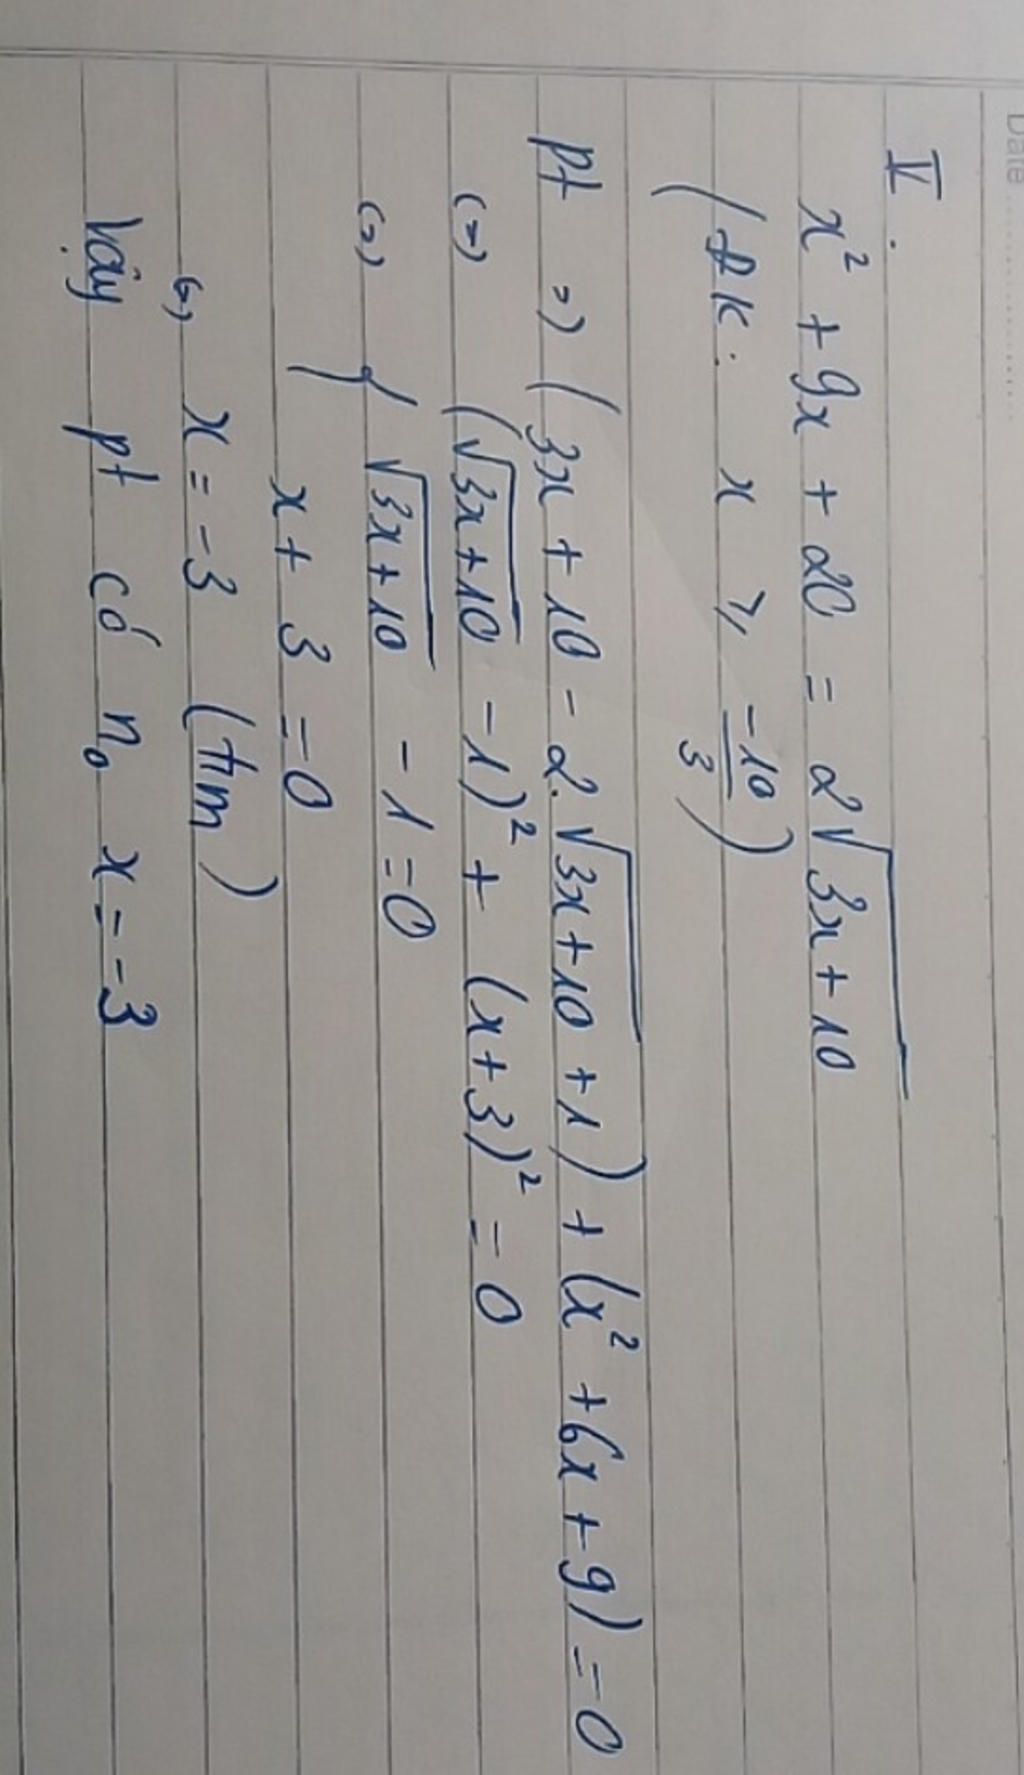 Date
V.
x² + 9x + 20 = 2√3x+10
(ĐK: x ≥ -10/3)
pt => (3x + 10 - 2.√3x+10 + 1) + (x² + 6x + 9) = 0
(=) (√3x+10 - 1)² + (x+3)² = 0
(=) { √3x+10 - 1 = 0
x + 3 = 0
(=) x = -3 (tm)
Vậy pt có n₀ x = -3